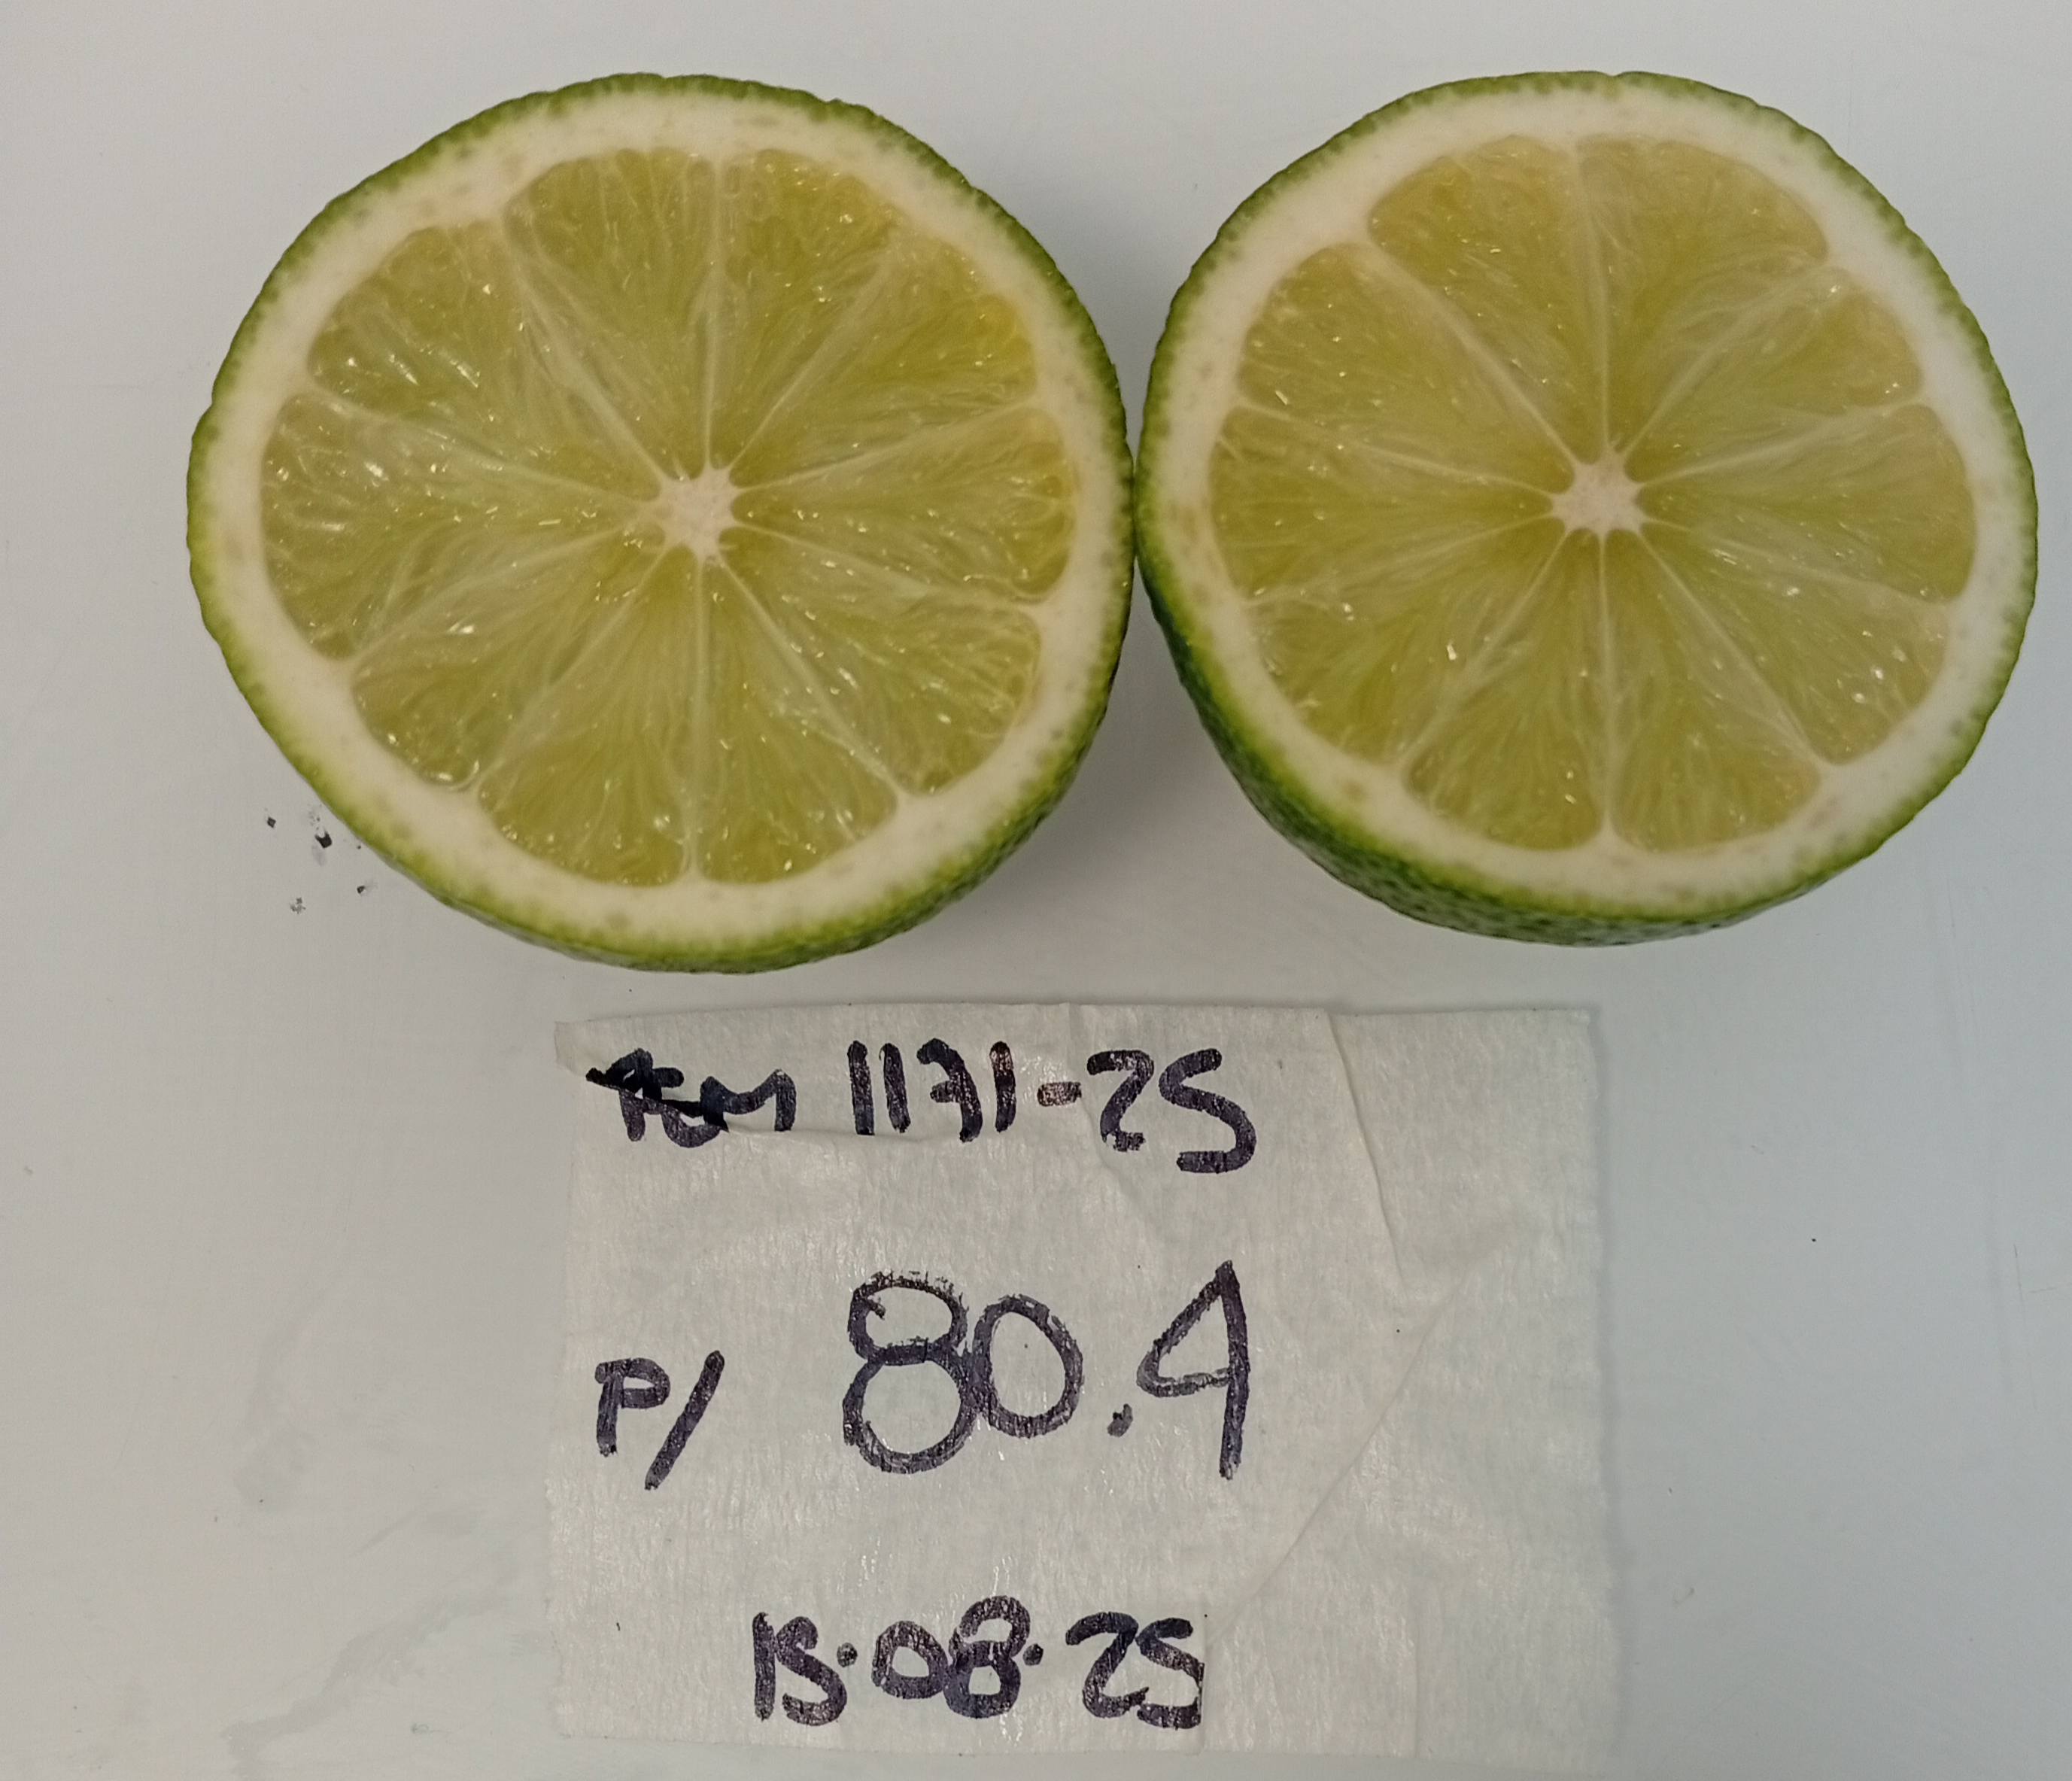 1171-25
P/ 80.4
15.08.25